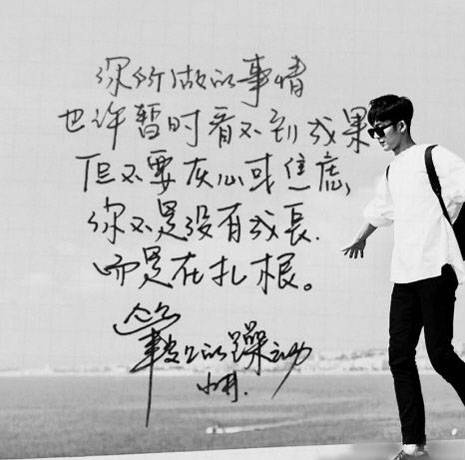 你所做的事情
也许暂时看不到成果
但不要灰心或焦虑
你不是没有成长.
而是在扎根。